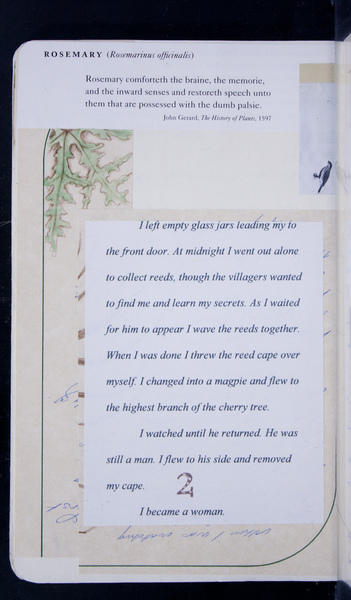 ROSEMARY (Rosemarinus officinalis)
Rosemary comforteth the braine, the memorie,
and the inward senses and restoreth speech unto
them that are possessed with the dumb palsie.
John Gerard, The History of Plants, 1597
I left empty glass jars leading my to
the front door. At midnight I went out alone
to collect reeds, though the villagers wanted
to find me and learn my secrets. As I waited
for him to appear I wave the reeds together.
When I was done I threw the reed cape over
myself. I changed into a magpie and flew to
the highest branch of the cherry tree.
I watched until he returned. He was
still a man. I flew to his side and removed
my cape.
2
I became a woman.